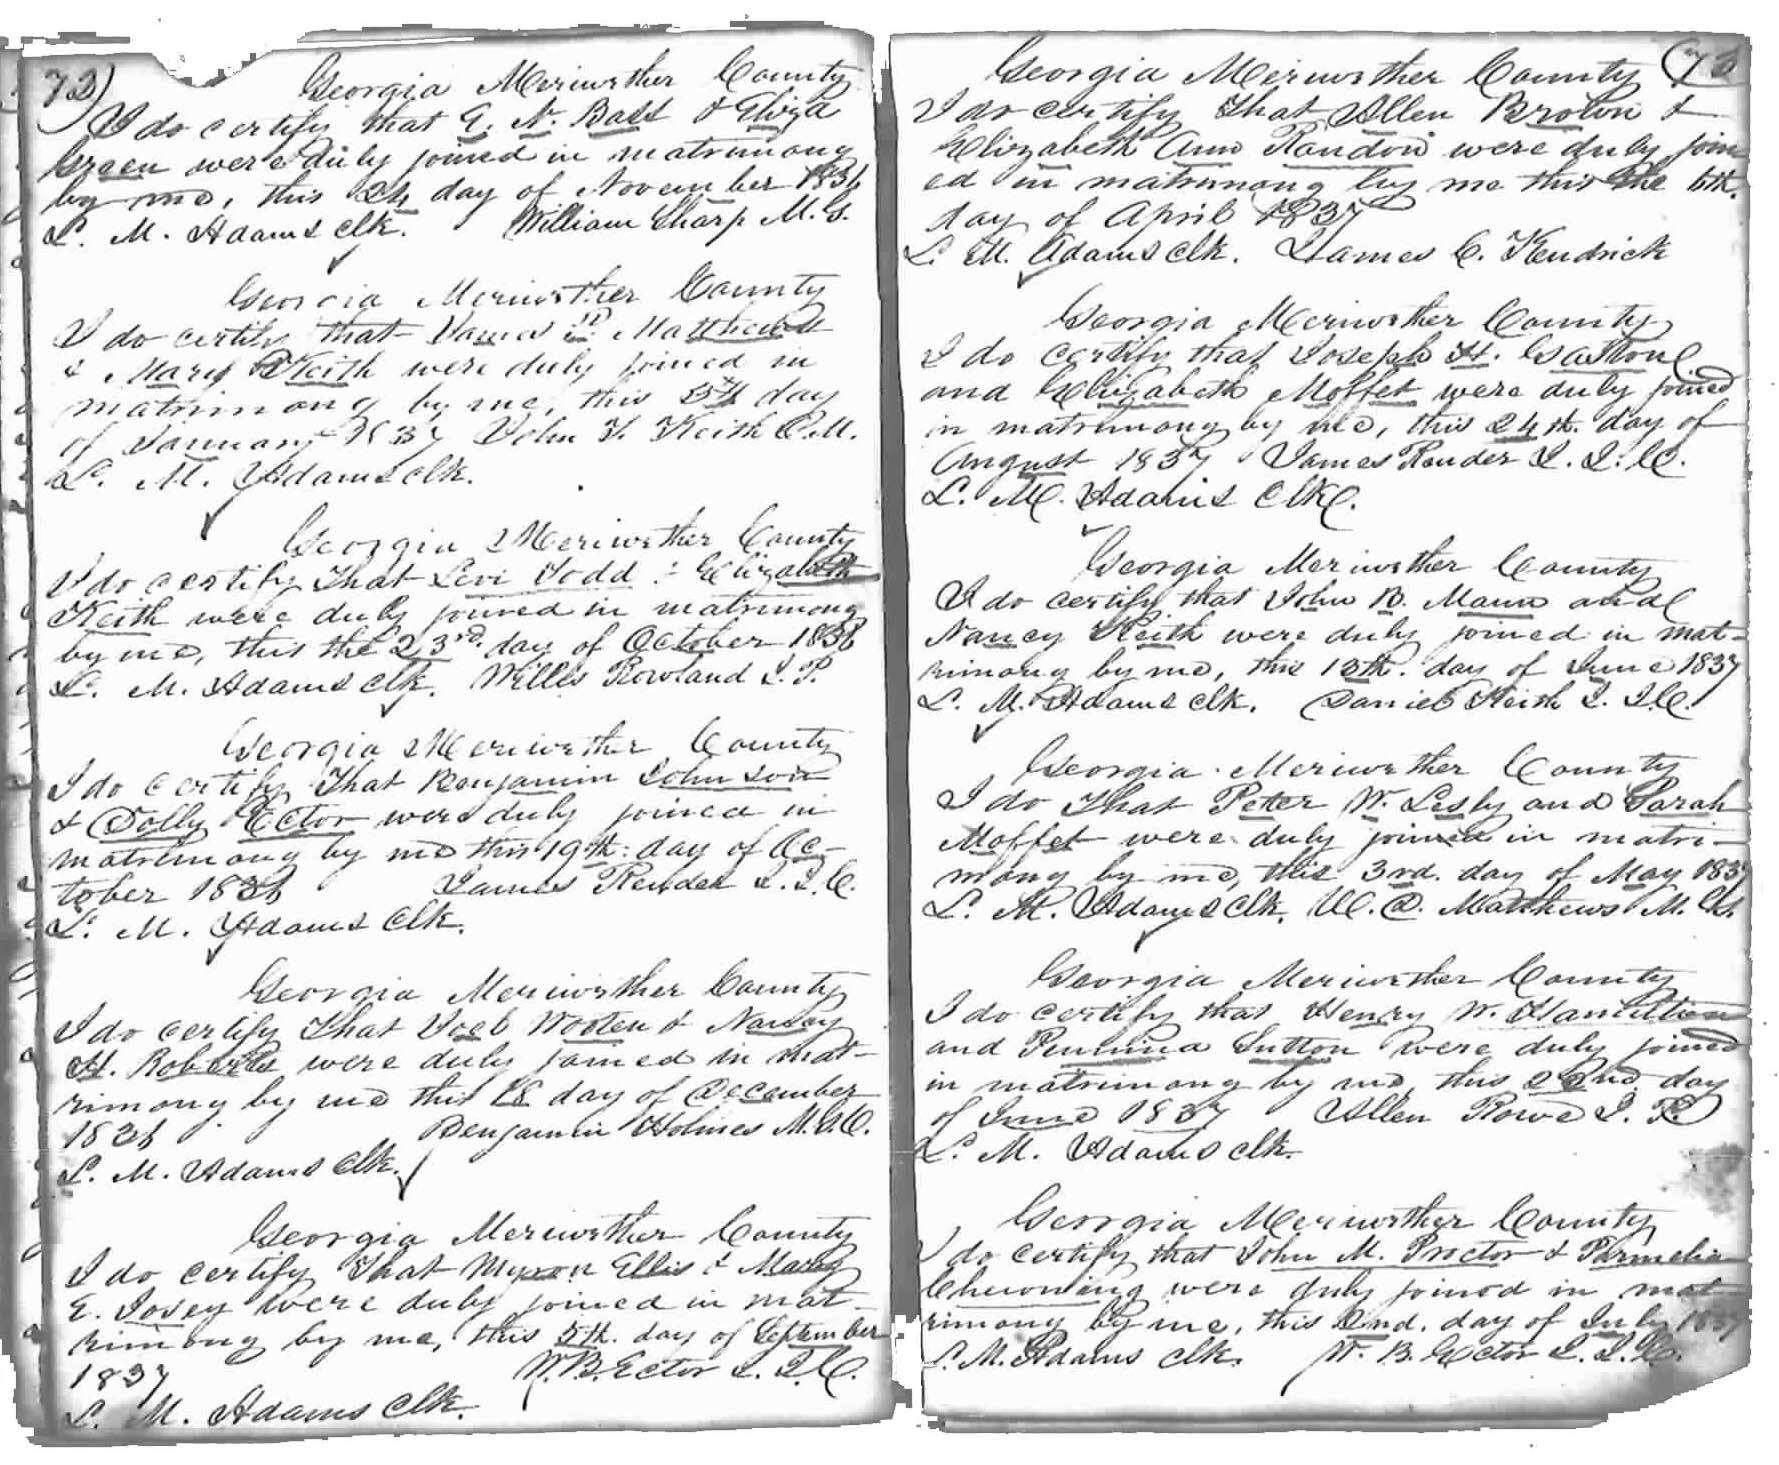 73)
Georgia Meriwether County
I do certify that E. N. Bass & Eliza
Green were duly joined in matrimony
by me, this 24 day of November 1836
L. M. Adams Clk. William Sharp M. G.
Georgia Meriwether County
I do certify that James Matthews
& Mary Keith were duly joined in
matrimony by me, this 5th day
of January 1837 John Keith
L. M. Adams Clk.
Georgia Meriwether County
I do certify that Levi Todd & Elizabeth
Keith were duly joined in matrimony
by me, this the 23rd. day of October 1836
L. M. Adams Clk. Willis Rowland J. P.
Georgia Meriwether County
I do certify that Benjamin Johnson
& Dolly Ector were duly joined in
matrimony by me this 19th. day of Oc-
tober 1836 James Render J. I. C.
L. M. Adams Clk.
Georgia Meriwether County
I do certify that Joel Wooten & Nancy
H. Roberts were duly joined in mat-
rimony by me this 18 day of December
1836 Benjamin Holmes
L. M. Adams Clk.
Georgia Meriwether County
I do certify that Myron Ellis & Mary
E. Josey were duly joined in mat-
rimony by me, this 5th. day of September
1837 W. B. Ector J. I. C.
L. M. Adams Clk.
(73
Georgia Meriwether County
I do certify that Allen Brown &
Elizabeth Ann Randon were duly join-
ed in matrimony by me this the 6th.
day of April 1837
L. M. Adams Clk. James C. Kendrick
Georgia Meriwether County
I do certify that Joseph H. Gaston
and Elizabeth Moffet were duly joined
in matrimony by me, this 24th. day of
August 1837 James Render J. I. C.
L. M. Adams Clk.
Georgia Meriwether County
I do certify that John B. Mann and
Nancy Keith were duly joined in mat-
rimony by me, this 15th. day of June 1837
L. M. Adams Clk. Daniel Keith J. I. C.
Georgia Meriwether County
I do that Peter W. Lesly and Sarah
Moffet were duly joined in matri-
mony by me, this 3rd. day of May 1837
L. M. Adams Clk. Matthews M. G.
Georgia Meriwether County
I do certify that Henry W. Hamiltion
and Pennina Sutton were duly joined
in matrimony by me, this 22nd day
of June 1837 Allen Rowe J. P.
L. M. Adams Clk.
Georgia Meriwether County
I do certify that John M. Proctor & Parmelia
Chewning were duly joined in mat-
rimony by me, this 2nd. day of July 1837
L. M. Adams Clk. W. B. Ector J. I. C.